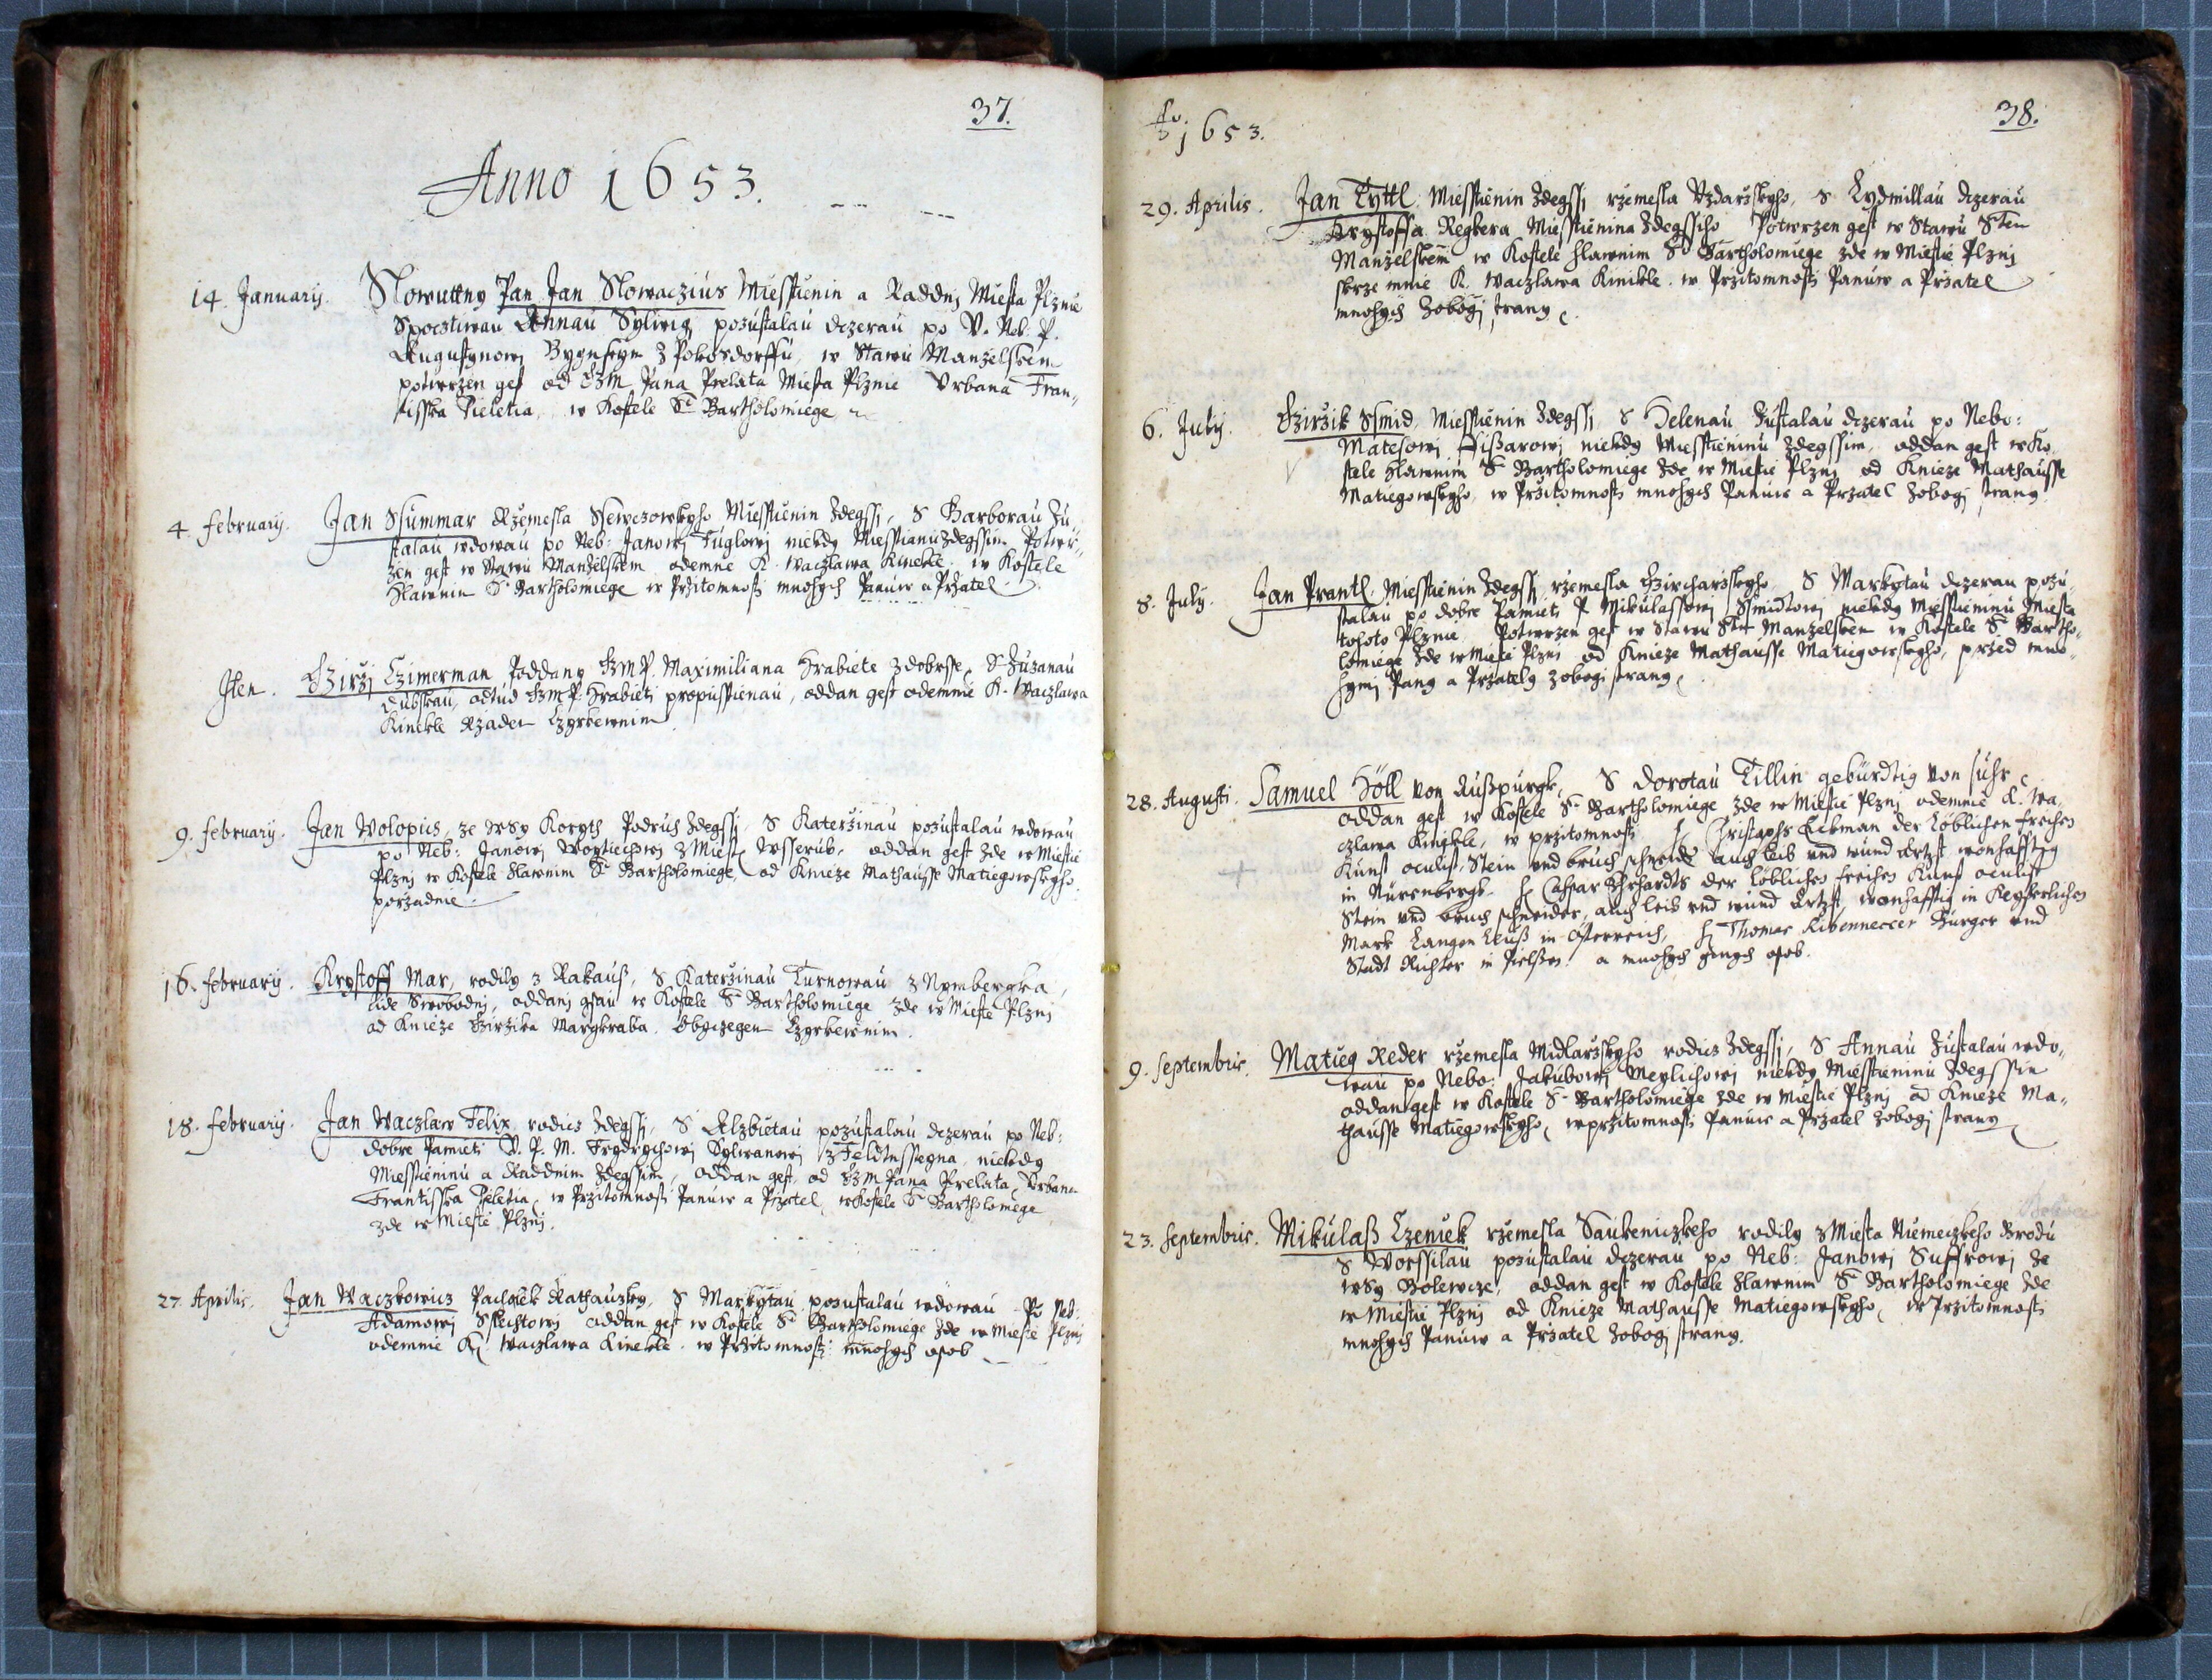 37.
Anno 1653.
14. Januarij. Slowuttny Pan Jan Slowaczius Miesstienin a Raddnj Miesta Plznie
Spocztiwau Annau Sylwig pozustalau dczerau po V. Neb. P.
Augustynowj z Pokosdorffu, w Stawu Manzelskem
potwrzen gest od JzM Pana Prelata Miesta Plznie Vrbana Fran„
tisska Pieletia, w Kostele S. Bartholomiege
4. february. Jan Ssummar Rzemesla Ssewczowskyho Miesstienin Zdegssj, S Barborau Zu„
stalau wdowau po Neb: Janowj Tuglowj niekdy Miesstianinu Zdegssim. Potwr„
zen gest w Stawu Manzelskem odemne K. Waczlawa Kinekle. w Kostele
Hlawnim S. Bartholomiege w Przitomnosti mnohych Panuw a Przatel.
Iten. Jzirzj Czimerman Poddany JzM P. Maximiliana Hrabiete z dobrsse, S Zuzanau
Dubskau, odtud JzM P. Hrabieti propusstienau, oddan gest odemnie K. Waczlawa
Kinekle Rzadem Czyrkewnim.
9. february. Jan Wolopius, ze wsy Koryth Podruh Zdegssj, S Katerzinau pozustalau wdowau
po Neb: Janowj Woytiechowj z Miest. Wsserub, oddan gest Zde w Miestie
Plznj w Kostele Hlawnim S. Bartholomiege, od Knieze Mathausse Matiegowskyho.
porzadnie.
16. february. Krystoff Mar, rodily z Rakauß, S Katerzinau Turnowau z Nymbergka,
lide Swobodnj, oddanj gsau w Kostele S. Bartholomiege Zde w Miestie Plznj
od Knieze Jzirzika Margkraba. Obyczegem Czyrkewnim.
18. february. Jan Waczlaw Felix, rodicz Zdegssj, S Alzbietau pozustalau dczerau po Neb:
dobre Pamieti V. P. M. Frydrychowj Sylwanowj z Feldtnssegna, niekdy
Miesstieninu a Raddnim Zdegssim, oddan gest od JzM Pana Prelata, Vrbana
Frantisska Peletia, w Przitomnosti Panuw a Przatel, w Kostele S. Bartholomege
zde w Miestie Plznj.
27. Aprilis. Jan Waczkowicz Pacholek Rathauzsky, S Markytau pozustalau wdowau Po Neb:
Adamowj Sslechtowj oddan gest w Kostele S. Bartholomiege Zde w Miestie Plznj
odemnie K. Waczlawa Kinekle. w Przitomnosti mnohych osob.
Ao. 1653.
38.
29. Aprilis. Jan Tyttl Miesstienin Zdegssj rzemesla Vzdarzskyho, S Lydmillau dczerau
Krystoffa Regkera Miesstienina Zdegssiho Potwrzen gest w Stawu Sten
Manzelskem w Kostele hlawnim S. Bartholomiege zde w Miestie Plznj
skrze mnie K. Waczlawa Kinikle. w Przitomnosti Panuw a Przatel
mnohych Zobogj strany.
6. July. Jzirzik Ssmid, Miesstienin Zdegssj, S Helenau Zustalau dczerau po Nebo:
Matesowj Fißarowj niekdy Miesstieninu Zdegssim. oddan gest w Ko„
stele Hlawnim S. Bartholomiege Zde w Miestie Plznj od Knieze Mathausse
Matiegowskyho, w Przitomnosti mnohych Panuw a Przatel Zobogj strany.
8. July. Jan Prantl. Miesstienin Zdegssj rzemesla Jzircharzskyho S Markytau dczerau pozu„
stalau po dobre Pamieti P. Mikulassowj Ssmidtowj niekdy Miesstieninu Miesta
tohoto Plznie. Potwrzen gest w Stawu Stem Manzelskem w Kostele S. Bartho„
lomiege Zde w Miestie Plznj od Knieze Mathausse Matiegowskyho, przed mno„
hymj Pany a Przately z obogi strany.
28. Augusti. Samuel Höll von Außpurgk, S Dorotau Tillin gebürdtig von Suhr,
oddan gest w Kostele S. Bartholomiege Zde w Miestie Plznj odemnie K. Wa„
czlawa Kinekle, w przitomnosti H. Christophs Eckman der Löblichen freihen
Kunst oculist, Stein vnd bruch schneider auch leib vnd wund Artzt wonhafftig
in Nürenbergk. H. Caspar Ehrhardts der löblichen freihen Kunst oculist
Stein vnd bruch schneider, auch leib vnd wund Artzt, wonhafftig in Keyserlichen
Mark Langen in Österreich, H. Thomas Bürger vnd
Stadt Richter in Pielßen. a mnohych ginych osob.
9. Septembris. Matieg Reder rzemesla Midlarzskyho rodicz Zdegssj, S Annau Zustalau wdo„
wau po Nebo: Jakubowj Meylichowj niekdy Miesstieninu Zdegssim
oddan gest w Kostele S. Bartholomiege Zde w Miestie Plznj od Knieze Ma„
thausse Matiegowskyho, w przitomnosti Panuw a Przatel Zobogj strany
23. Septembris. Mikulaß Czeniek rzemesla Saukeniczkeho rodily z Miesta Niemeczkeho Brodu
S Worssilau pozustalau dczerau po Neb: Janowj Suffrowj Ze
wsy Bolewcze, oddan gest w Kostele Hlawnim S. Bartholomiege Zde
w Miestie Plznj od Knieze Mathausse Matiegowskyho, w Przitomnosti
mnohych Panuw a Przatel Zobogj strany.